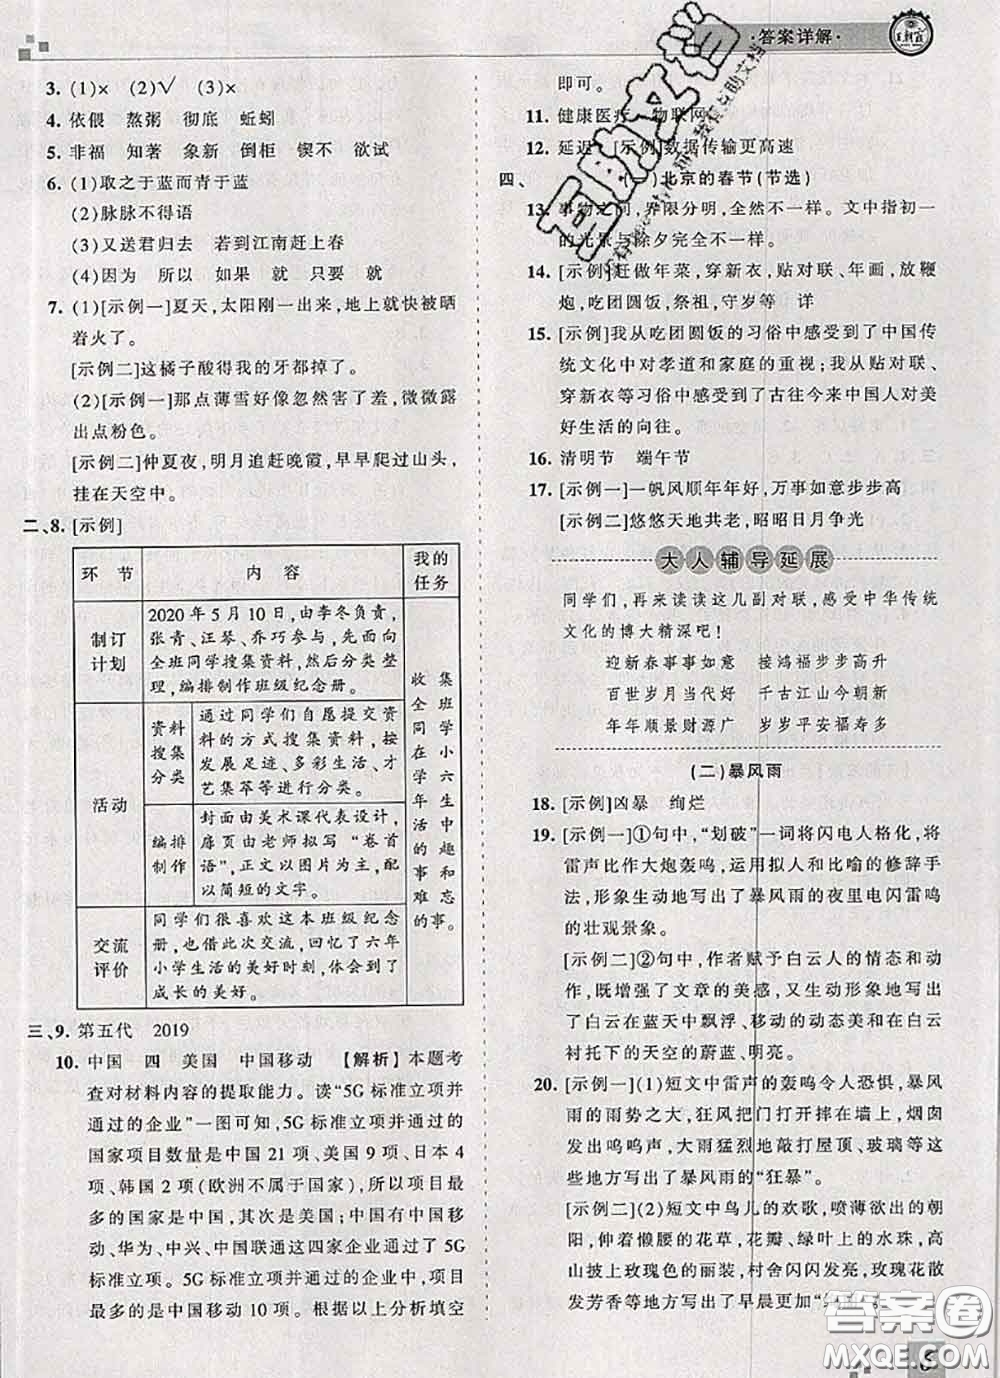 ·答案详解·
3. (1)× (2)√ (3)×
4. 依偎 熬粥 彻底 蚯蚓
5. 非福 知著 象新 倒柜 锲不 欲试
6. (1)取之于蓝而青于蓝
(2)脉脉不得语
(3)又送君归去 若到江南赶上春
(4)因为 所以 如果 就 只要 就
7. (1)[示例一]夏天,太阳刚一出来,地上就快被晒
着火了。
[示例二]这橘子酸得我的牙都掉了。
(2)[示例一]那点薄雪好像忽然害了羞,微微露
出点粉色。
[示例二]仲夏夜,明月追赶晚霞,早早爬过山头,
挂在天空中。
二、8. [示例]
环 节 内 容 我的任务
制订计划
2020年5月10日,由李冬负责,
张青、汪琴、乔巧参与,先面向
全班同学搜集资料,然后分类
整理,编排制作班级纪念册。
活动
资料搜集分类
通过同学们自愿提交资
料的方式搜集资料,按
发展足迹、多彩生活、才
艺集萃等进行分类。
编排制作
封面由美术课代表设计,
扉页由老师拟写“卷首
语”,正文以图片为主,配
以简短的文字。
交流评价
同学们很喜欢这本班级纪念
册,也借此次交流,回忆了六年
小学生活的美好时刻,体会到了
成长的美好。
收集全班同学在小学六年生活中的趣事和难忘的事。
三、9. 第五代 2019
10. 中国 四 美国 中国移动 【解析】本题考
查对材料内容的提取能力。读“5G标准立项并
通过的企业”一图可知,5G标准立项并通过的
国家项目数量是中国21项、美国9项、日本4
项、韩国2项(欧洲不属于国家),所以项目最
多的国家是中国,其次是美国;中国有中国移
动、华为、中兴、中国联通这四家企业通过了5G
标准立项。5G标准立项并通过的企业中,项目
最多的是中国移动10项。根据以上分析填空
即可。
11. 健康医疗 物联网
12. 延迟 [示例]数据传输更高速
四、 )北京的春节(节选)
13. 事物之间,界限分明,全然不一样。文中指初一
的光景与除夕完全不一样。
14. [示例]赶做年菜,穿新衣,贴对联、年画,放鞭
炮,吃团圆饭,祭祖,守岁等 详
15. [示例]我从吃团圆饭的习俗中感受到了中国传
统文化中对孝道和家庭的重视;我从贴对联、
穿新衣等习俗中感受到了古往今来中国人对美
好生活的向往。
16. 清明节 端午节
17. [示例一]一帆风顺年年好,万事如意步步高
[示例二]悠悠天地共老,昭昭日月争光
大人辅导延展
同学们,再来读读这几副对联,感受中华传统
文化的博大精深吧!
迎新春事事如意 接鸿福步步高升
百世岁月当代好 千古江山今朝新
年年顺景财源广 岁岁平安福寿多
(二)暴风雨
18. [示例]凶暴 绚烂
19. [示例一]①句中,“划破”一词将闪电人格化,将
雷声比作大炮轰鸣,运用拟人和比喻的修辞手
法,形象生动地写出了暴风雨的夜里电闪雷鸣
的壮观景象。
[示例二]②句中,作者赋予白云人的情态和动
作,既增强了文章的美感,又生动形象地写出
了白云在蓝天中飘浮、移动的动态美和在白云
衬托下的天空的蔚蓝、明亮。
20. [示例一](1)短文中雷声的轰鸣令人恐惧,暴风
雨的雨势之大,狂风把门打开摔在墙上,烟囱
发出呜呜声,大雨猛烈地敲打屋顶、玻璃等,这
些地方写出了暴风雨的“狂暴”。
[示例二](2)短文中鸟儿的欢歌,喷薄欲出的朝
阳,伸着懒腰的花草,花瓣、绿叶上的水珠,高
山披上玫瑰色的丽装,村舍闪闪发亮,玫瑰花散
发芳香等地方写出了早晨更加“
答案圈
MXQE.COM